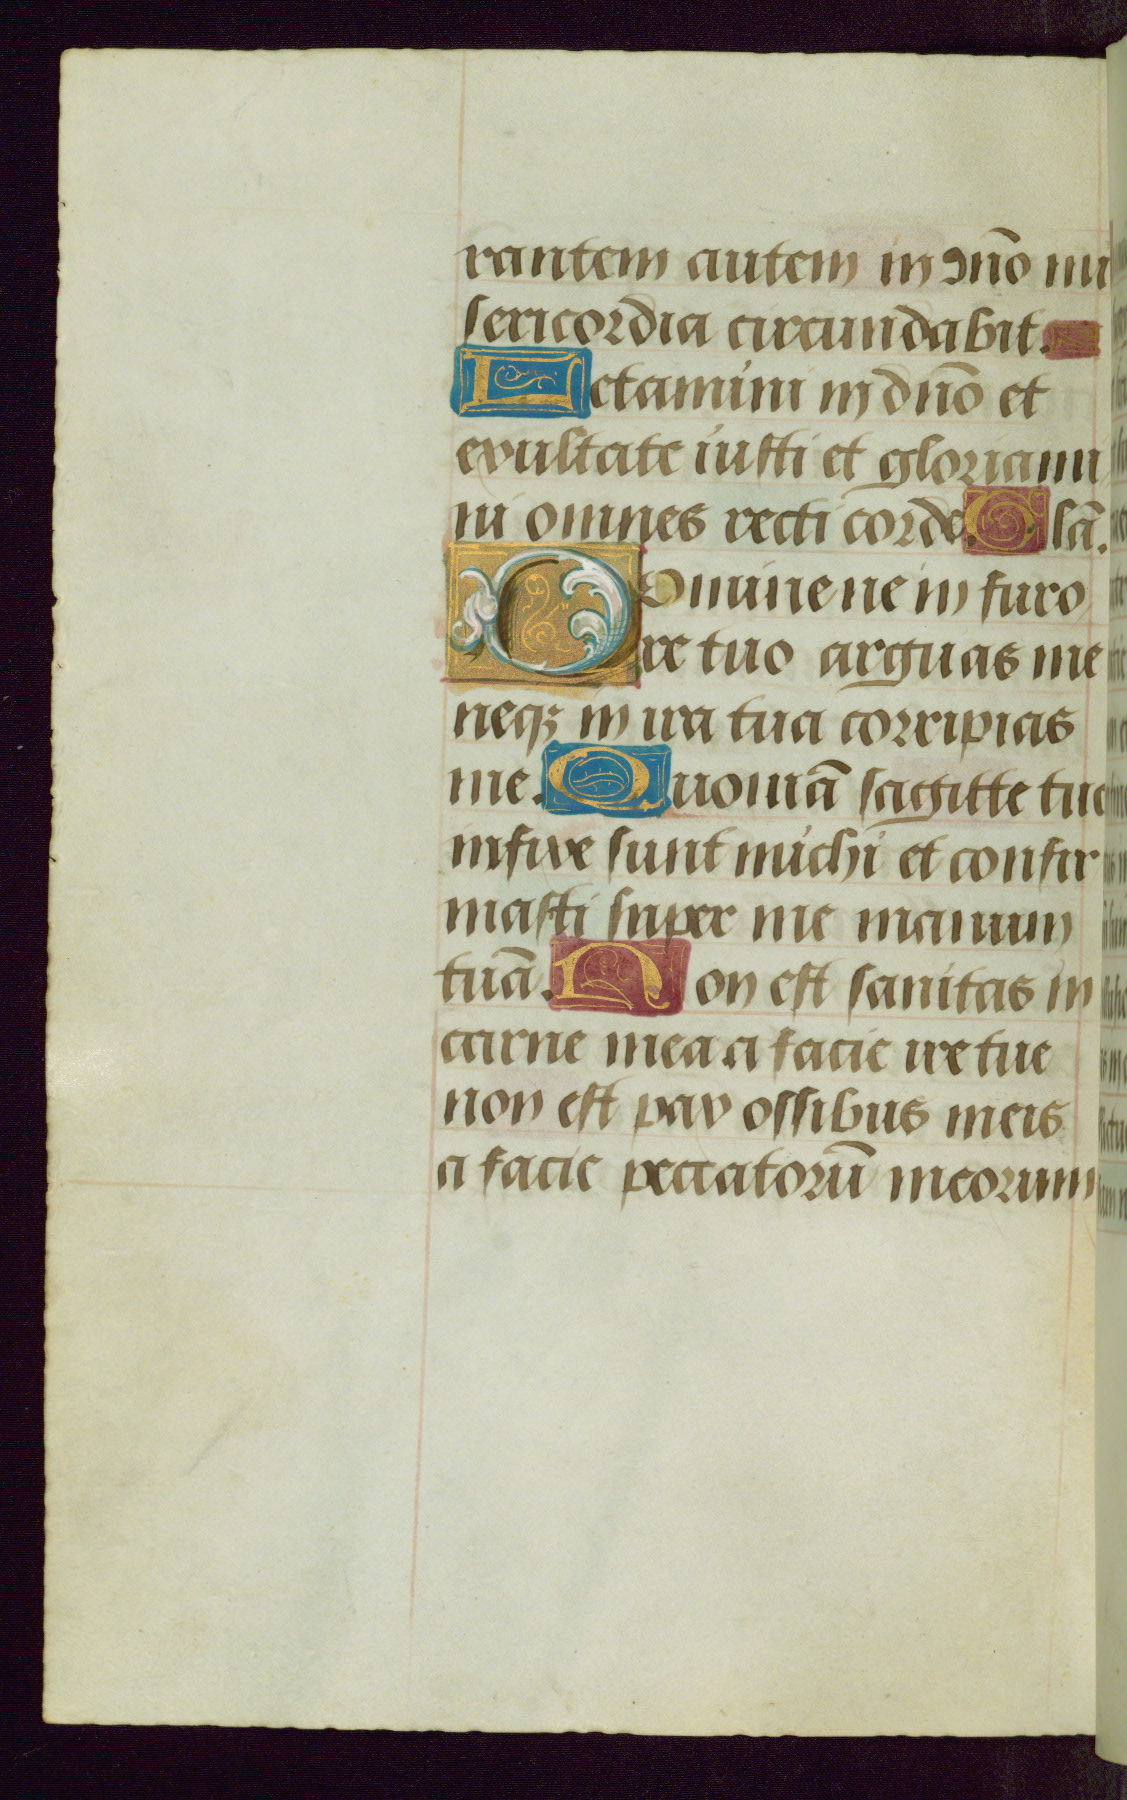 rantem autem in dño mi
sericordia circundabit.
Letamini in dño et
exultate iusti et gloriami
ni omnes recti corde. Glã.
Domine ne in furo
re tuo arguas me
neqꝫ in ira tua corripias
me. Quoniã sagitte tue
infixe sunt michi et confir
masti super me manum
tuã. Non est sanitas in
carne mea a facie ire tue
non est pax ossibus meis
a facie peccatorũ meorum